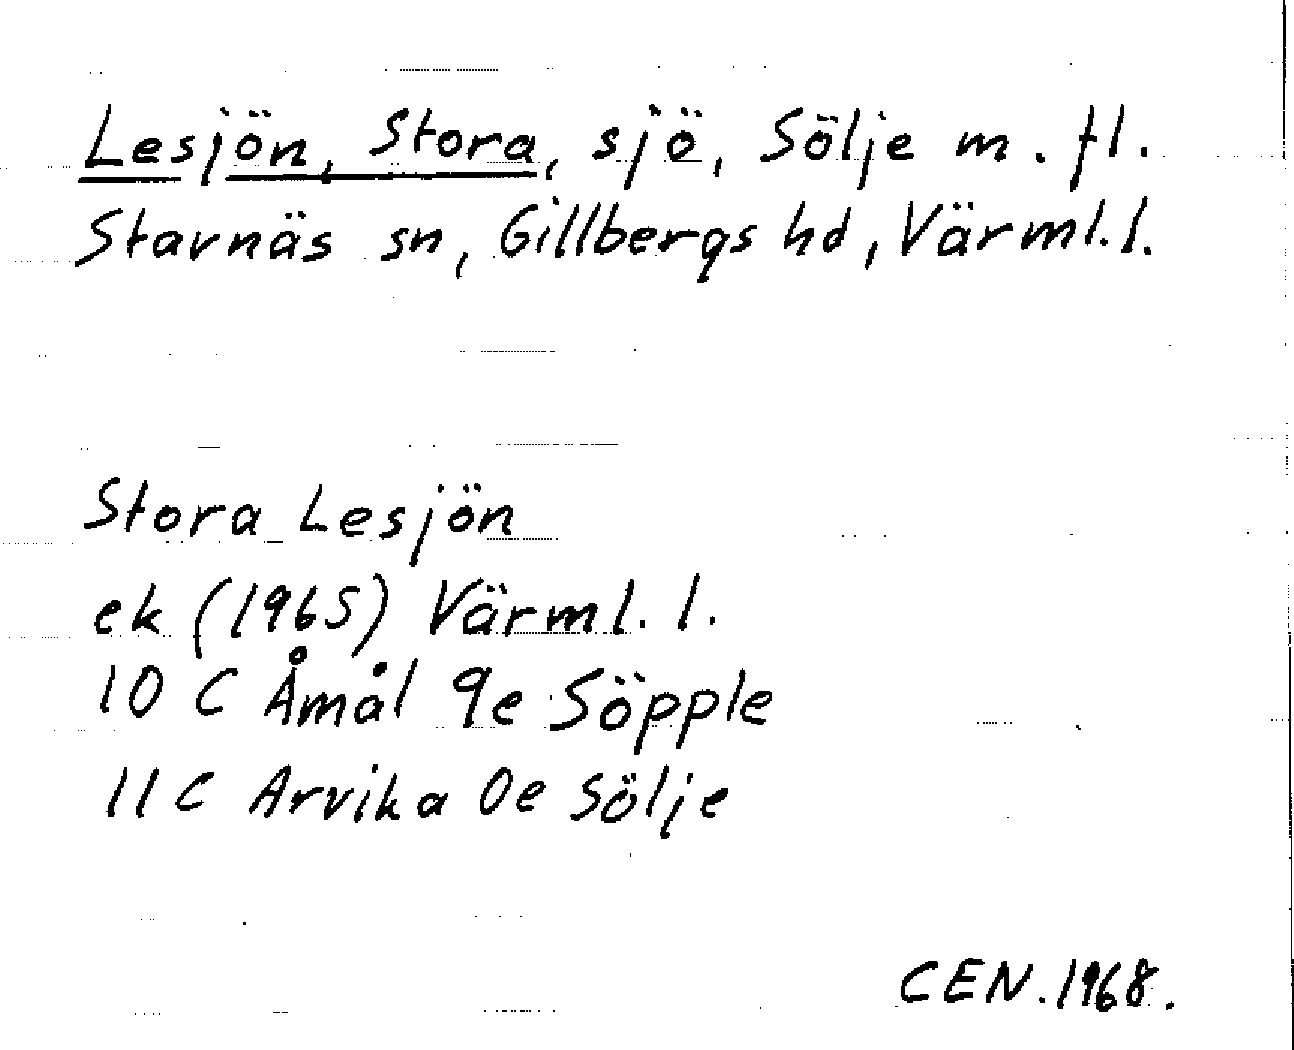 Lesjön, Stora, sjö, Sölje m. fl.
Stavnäs sn, Gillbergs hd, Värml. l.
Stora Lesjön
ek (1965) Värml. l.
10 C Åmål 9e Söpple
11 C Arvika 0e Sölje
CEN. 1968.